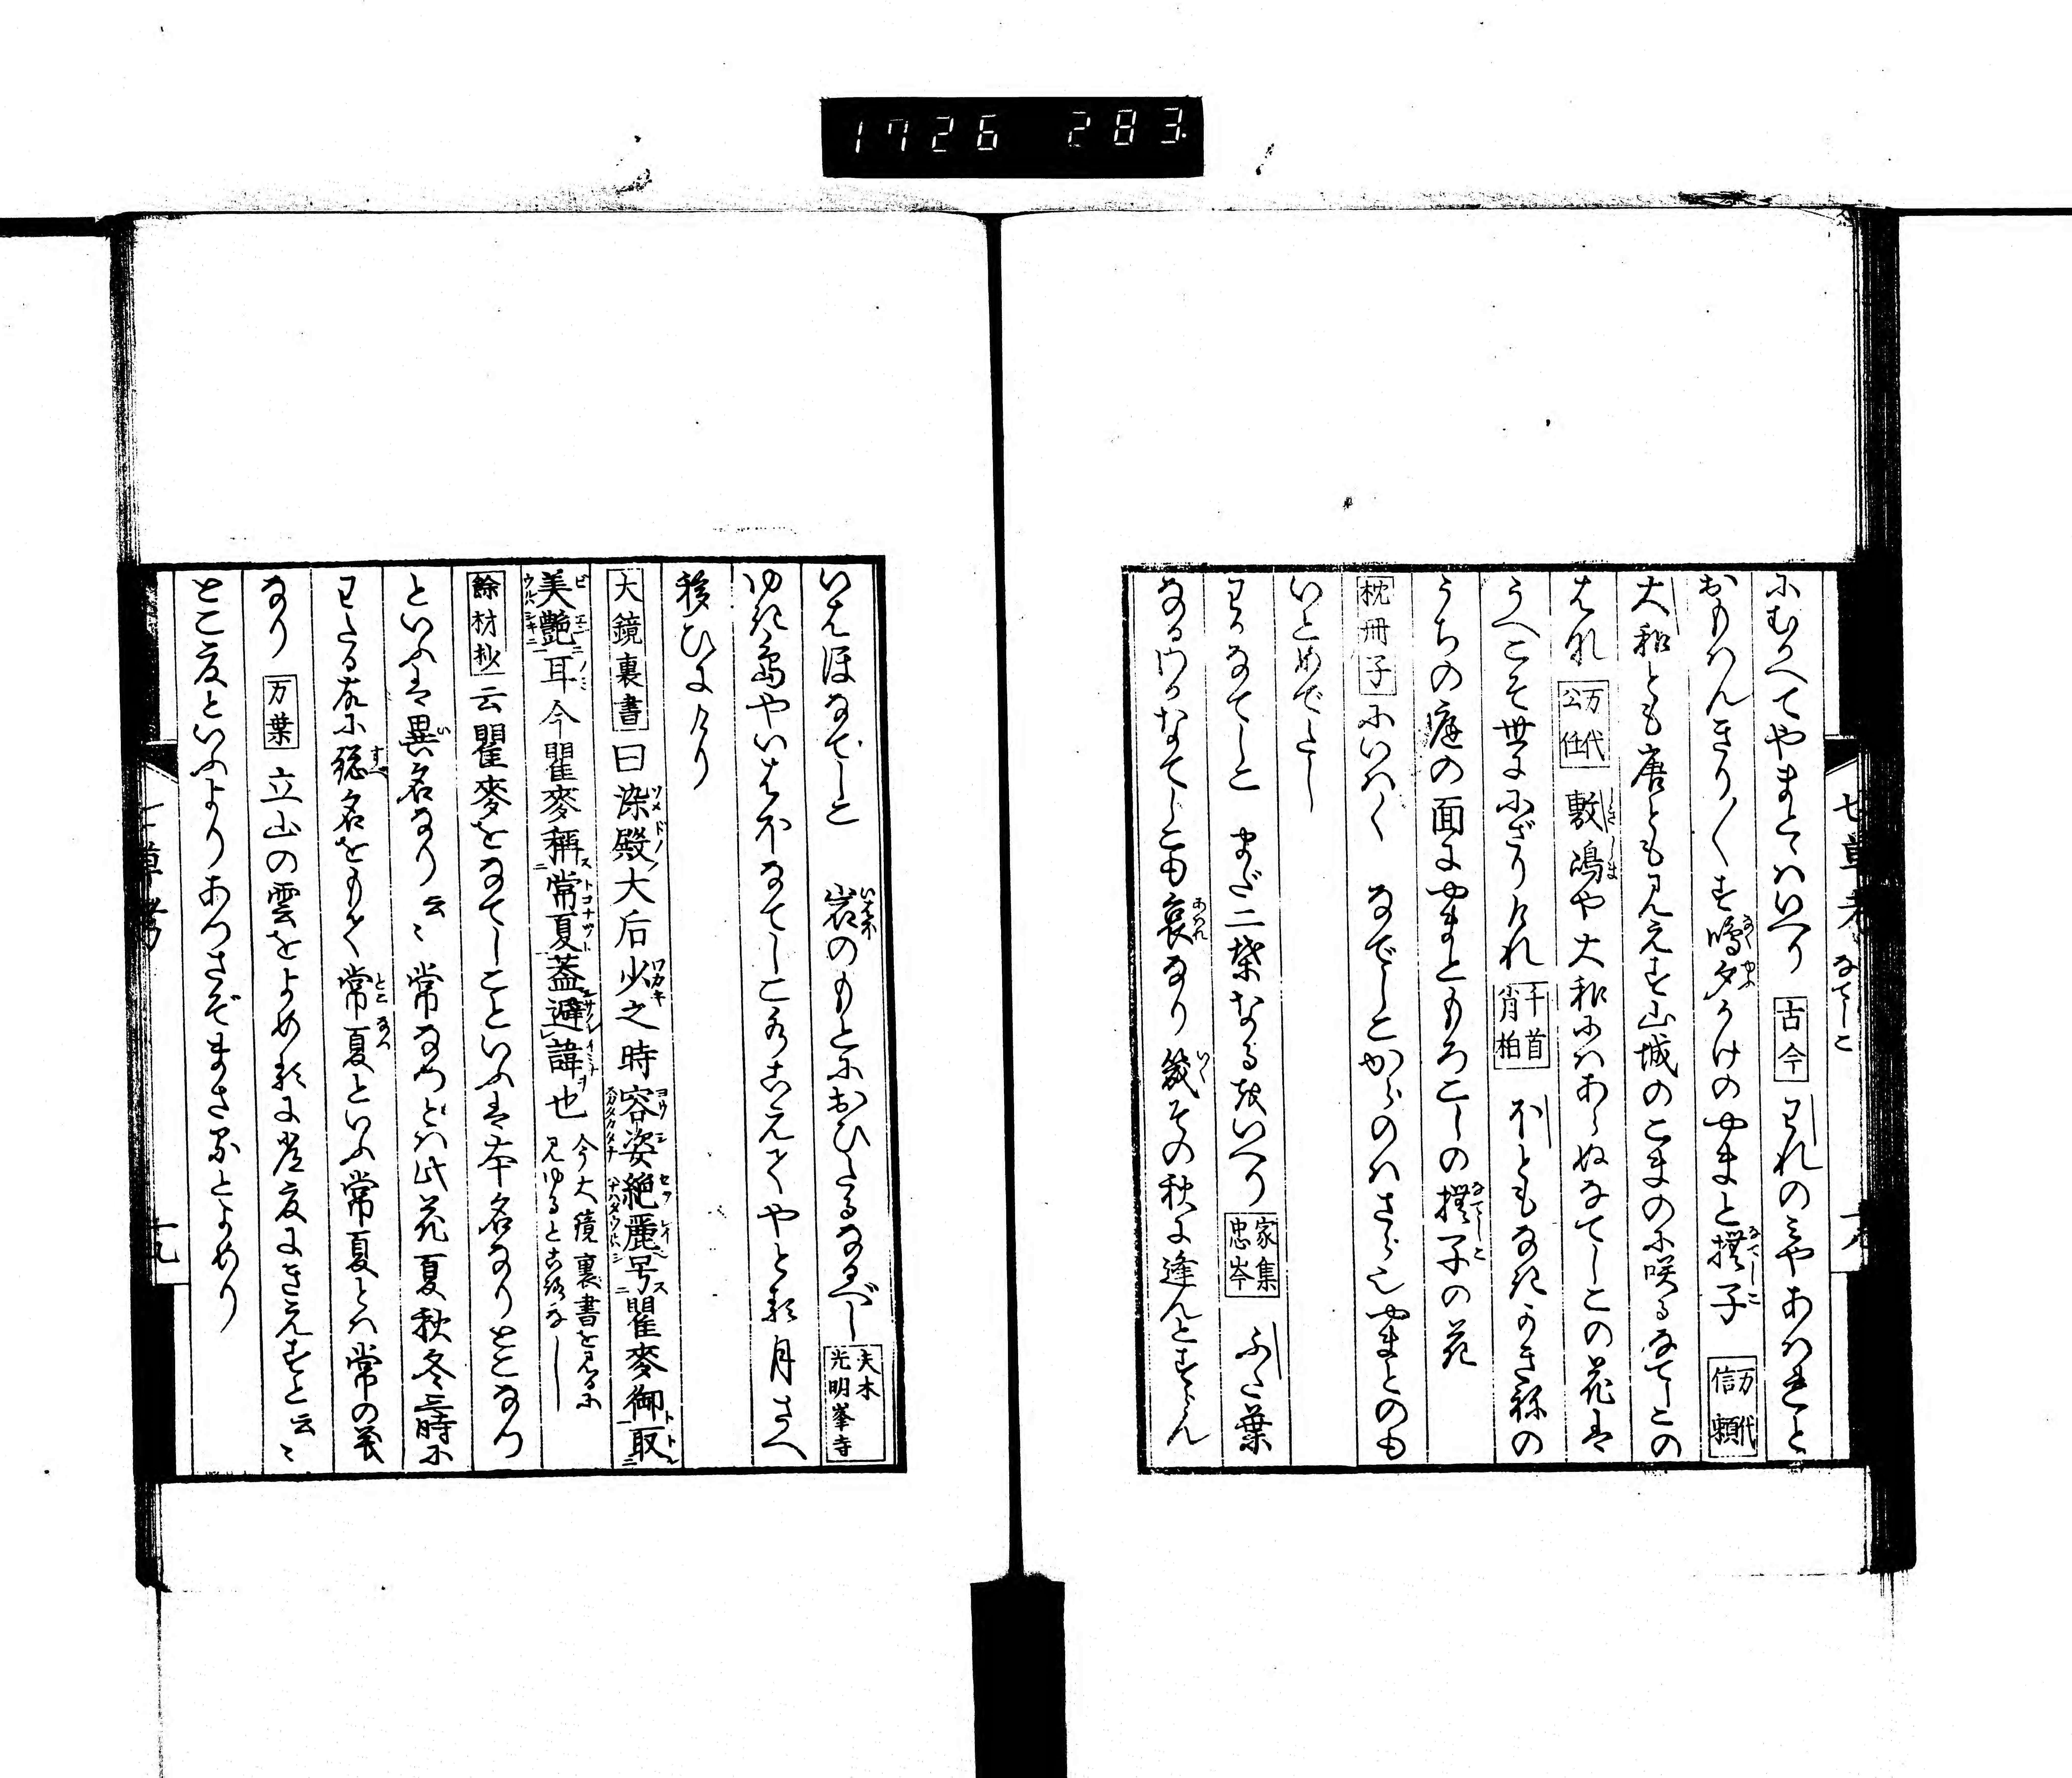 1726 283
七草考 なでしこ
にむかへてやまとゝはいへり 古今 われのミやあはれと
おもはんきり〱す鳴夕かけのやまと撫子 万代 信頼
大和とも唐とも見えす山城のこまのに咲るなてしこの
はな 万代 公任 敷嶋や大和にはあらぬなてしこの花は
うへこそ世ににざりけれ 千首 肖柏 おともなきかき祢の
うちの庭の面にやまともろこしの撫子の花
枕冊子にいはく なでしこからのはさら也やまとのも
いとめでたし
わかなてしこ まだ二葉なるをいへり 家集 忠岑 ふた葉
なるわかなてしこも哀なり幾その秋に逢んとすらん
いはほなでしこ 岩のもとにおひたるなるべし 夫木 光明峯寺
ゆき嶌やいはほなてしこ乃古えてやとる月さへ
移ひにけり
大鏡裏書曰染殿大后少之時容姿絶麗号瞿麥御取
美艶耳今瞿麥稱常夏蓋避諱也 今大鏡裏書を見るに 見ゆることなし
餘材抄云瞿麥をなてしこといふは本名なりとこなつ
といふは異名なり云〻常なつとは此花夏秋冬三時に
わたる故に総名をもて常夏といふ常夏とは常の義
なり 万葉 立山の雲をよめるに常夏にきえすと云〻
とこ夏といふよりあつさぞまさるとよめり
七草考 十九